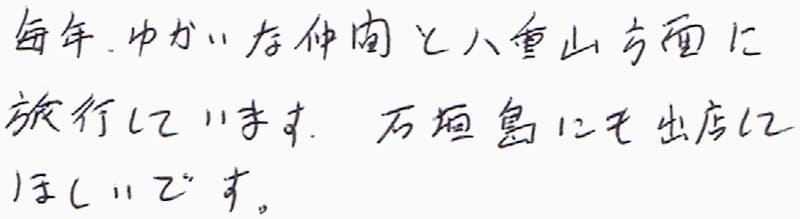 毎年、ゆかいな仲間と八重山方面に
旅行しています。 石垣島にも出店して
ほしいです。